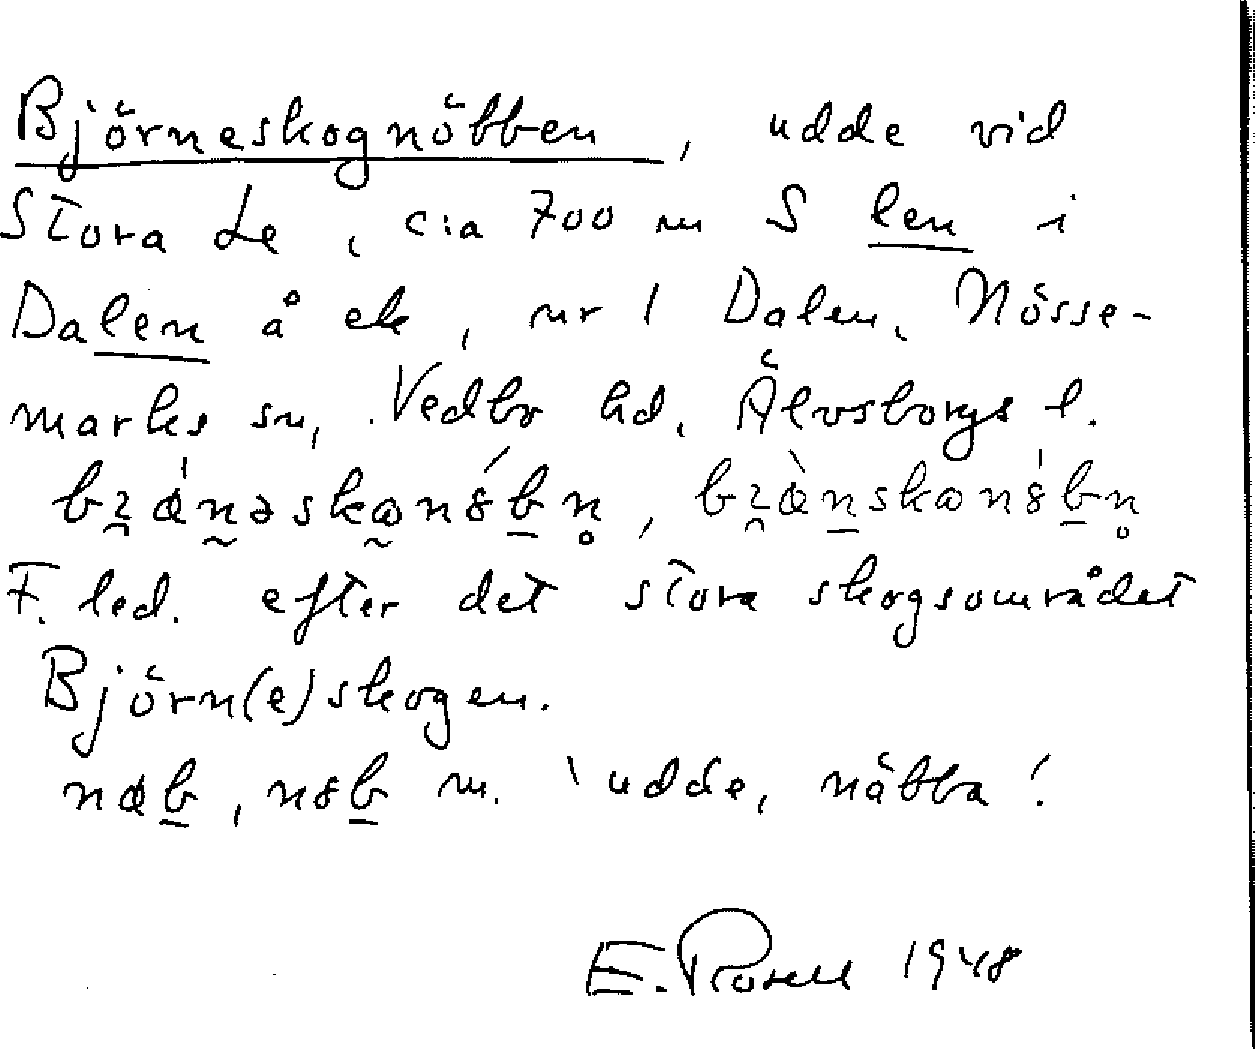 Björneskognöbben, udde vid
Stora Le, c:a 700 m S len i
Dalen å ek, nr 1 Dalen, Nösse-
marks sn, Vedbo hd, Älvsborgs l.
F. led. efter det stora skogsområdet
Björn(e)skogen.
m. 'udde, näbba'.
E. Rosell 1948